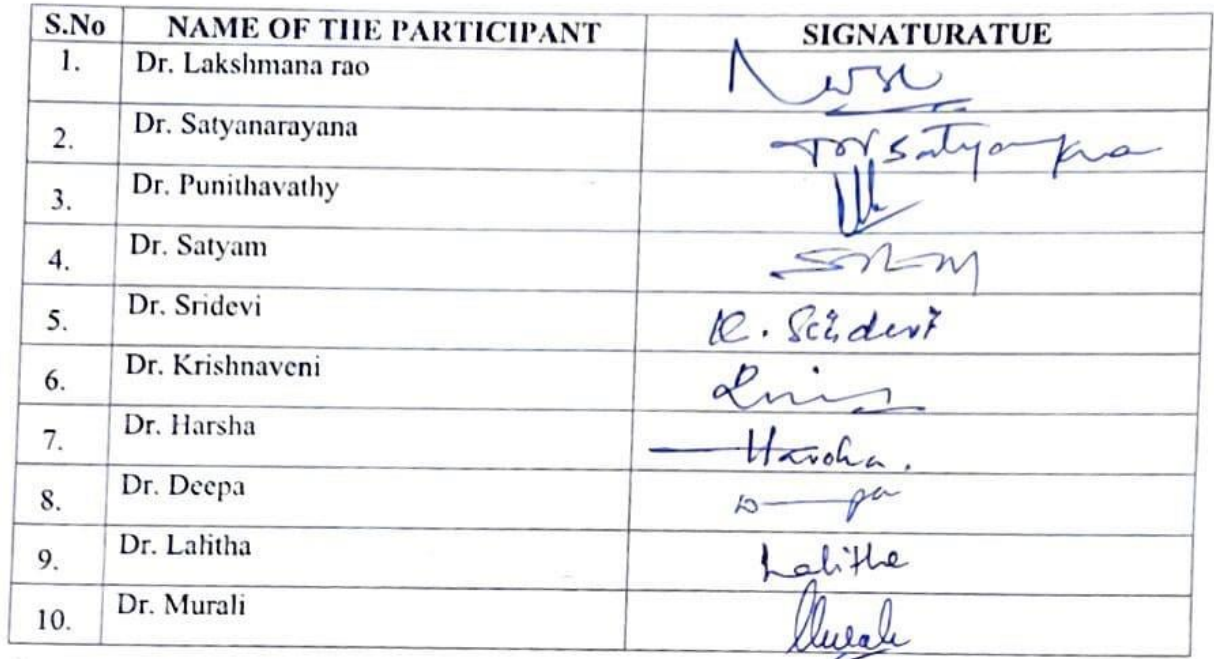 S.No NAME OF THE PARTICIPANT SIGNATURATUE
1. Dr. Lakshmana rao
2. Dr. Satyanarayana
3. Dr. Punithavathy
4. Dr. Satyam
5. Dr. Sridevi K. Sridevi
6. Dr. Krishnaveni
7. Dr. Harsha Harsha.
8. Dr. Deepa
9. Dr. Lalitha Lalitha
10. Dr. Murali Murali